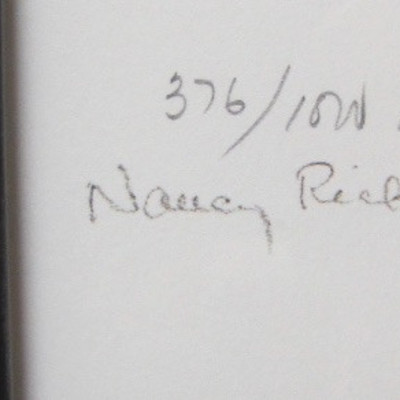 376/1000
Nancy Rich